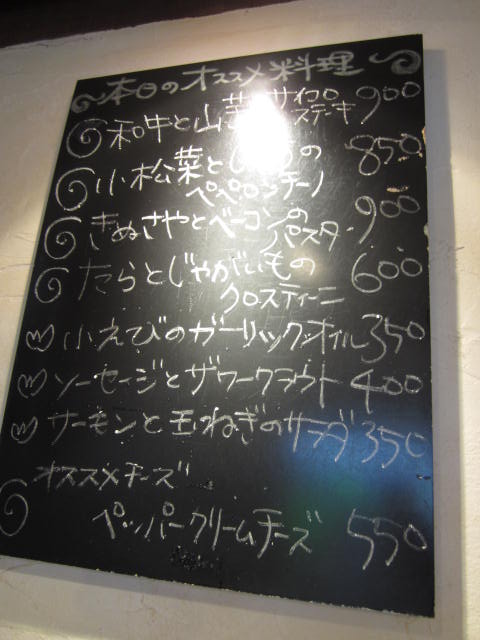 本日のオススメ料理
和牛と山 サイコロ
ステーキ 900
小松菜と の
ペペロンチーノ 850
きぬさやとベーコンの
パスタ 900
たらとじゃがいもの
クロスティーニ 600
小えびのガーリックオイル 350
ソーセージとザワークラウト 400
サーモンと玉ねぎのサラダ 350
オススメチーズ
ペッパークリームチーズ 550